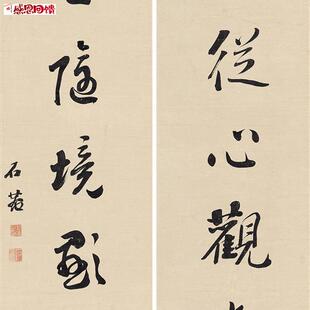 感恩回馈
從心觀
隨境
石菴